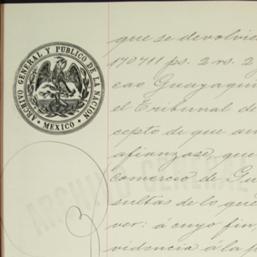 ARCHIVO GENERAL Y PUBLICO DE LA NACION
• MEXICO •
que se devolvie
170711 ps. 2 rs. 2
cao Guayaqui
el Tribunal de
cepto de que an
afianzase, que
comercio de Gu
sultas de lo que
ver: á cuyo fin,
videncia á la p
ARCHIVO GENERAL